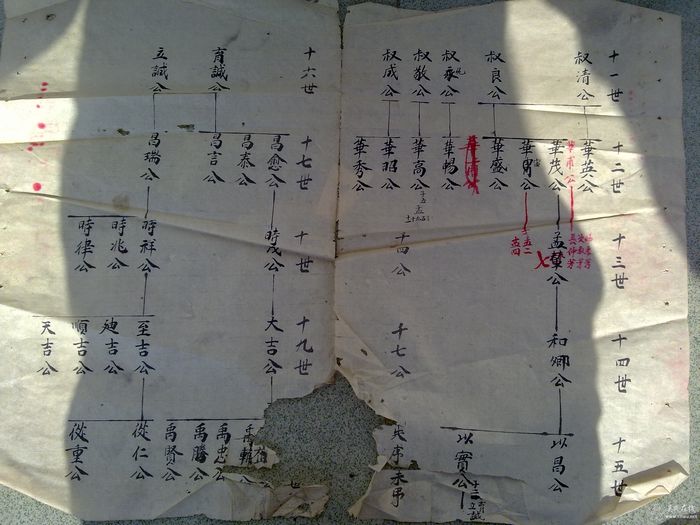 十一世
叔清公
叔良公
叔承公
叔敬公
叔咸公
十二世
華英公
華甫公
華茂公
華胃公
華盛公
華暢公
華高公
華昭公
華秀公
十三世
孟輦公
七
十四公
十四世
和卿公
千七公
十五世
以昌公
以實公
十六世
育誠公
立誠公
十七世
昌愈公
昌泰公
昌吉公
昌瑞公
十世
時茂公
時祥公
時兆公
時律公
十九世
大吉公
至吉公
迪吉公
順吉公
天吉公
世
禹輔
禹忠公
禹騰公
禹賢公
從仁公
從重公